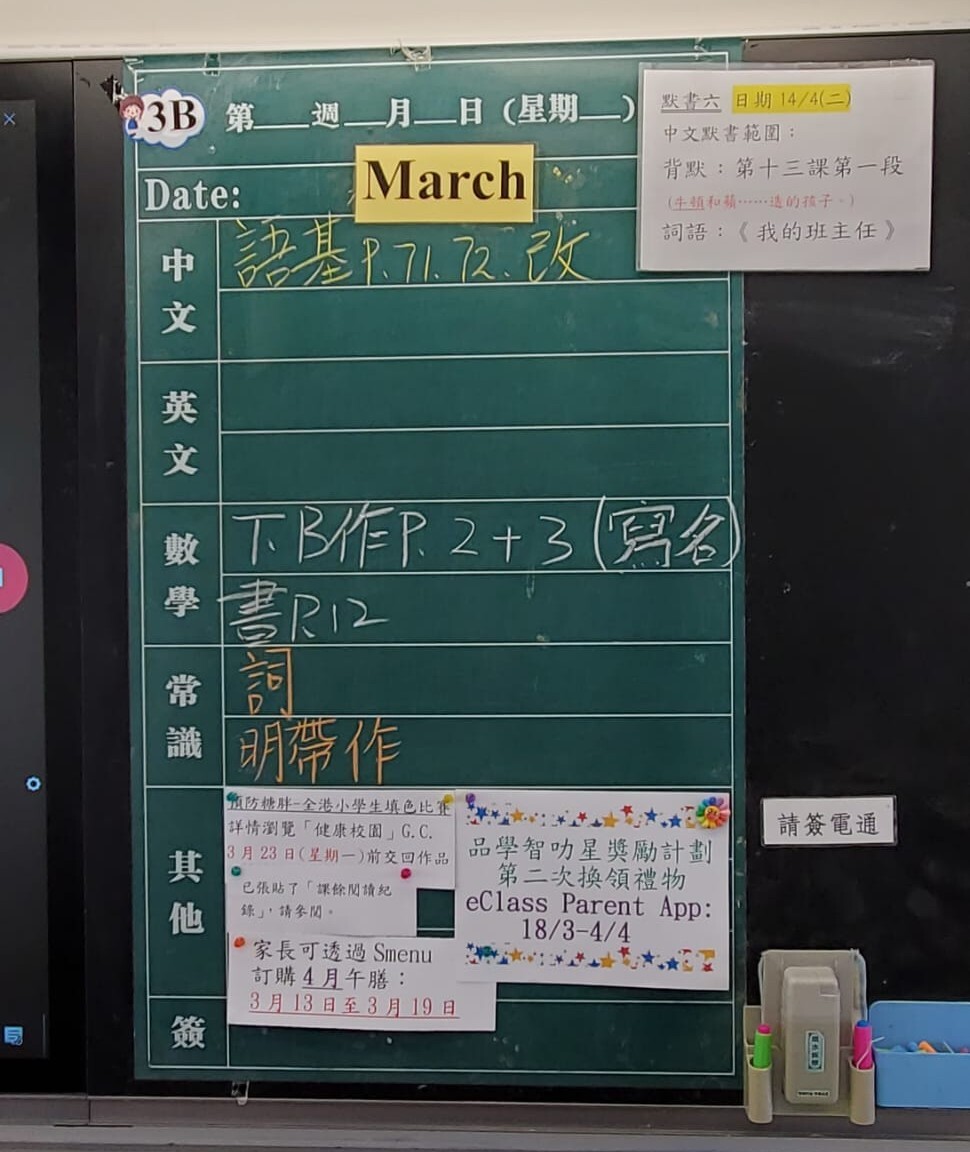 3B
第__週__月__日 (星期__)
Date:
March
默書六 日期 14/4(二)
中文默書範圍:
背默:第十三課第一段
(牛頓和蘋……造的孩子。)
詞語:《我的班主任》
中文
語基P.71.72.改
英文
數學
T.B作P.2+3(寫名)
書P.12
常識
詞
明帶作
其他
預防糖胖-全港小學生填色比賽
詳情瀏覽「健康校園」G.C.
3月23日(星期一)前交回作品
已張貼了「課餘閱讀紀
錄」,請參閱。
家長可透過 Smenu
訂購4月午膳:
3月13日至3月19日
品學智叻星獎勵計劃
第二次換領禮物
eClass Parent App:
18/3-4/4
簽
請簽電通